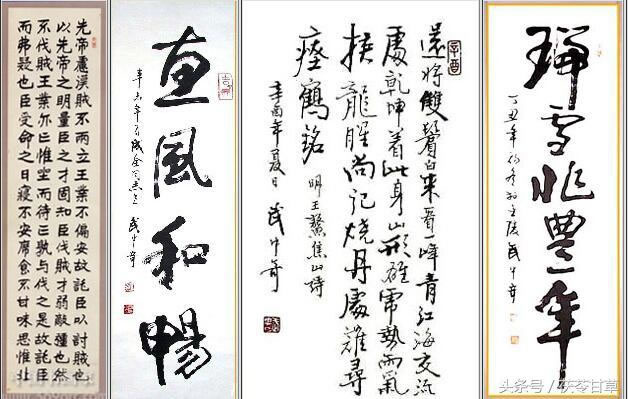 先帝慮漢賊不兩立王業不偏安故託臣以討賊也
以先帝之明量臣之才固知臣伐賊才弱敵彊也然
不伐賊王業亦亡惟坐而待亡孰與伐之是故託臣
而弗疑也臣受命之日寢不安席食不甘味思惟北
惠風和暢
辛未年 成全同志 武中奇
還將雙鬢白来看一峰青江海交流
處乾坤着此身山形雄帶勢雨氣
挾龍腥尚記燒丹處難尋
瘞鶴銘 明王鏊焦山詩
辛酉年夏日 武中奇
瑞雪兆豐年
丁丑年 於金陵武中奇
头条号 / 茯苓甘草